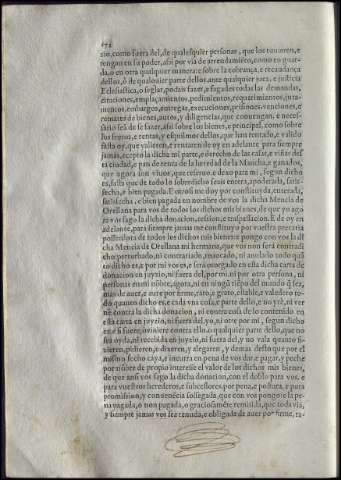 sio, como fuera del, de qualesquier personas, que los touieren, e
tengan en su poder, assi por via de arrendamiẽto, como en guar-
da, o en otra qualquier manera e sobre la cobrança, e recaudança
dellos, o de qualquier parte dellos ante qualquier juez, e justicia
Eclesiastica, o seglar, podais fazer, e fagades todas las demandas,
citaciones, emplazamientos, pedimientos, requerimientos, jura-
mentos, embargos, entregas, execuciones, prisiones, venciones, e
remates de bienes, autos, y diligencias, que conuengan, e neces-
sario sea de se fazer, assi sobre los bienes, e principal, como sobre
los frutos, e rentas, y esquilmos dellos, que han rentado, e valido
fasta oy, que valieren, e rentaren de oy en adelante para siempre
jamas, excepto la dicha mi parte, e derecho de las casas, e viñas des
ta ciudad, e pan de renta de la
que agora son viuos, que reseruo, e dexo para mi, segun dicho
es, fasta que de todo lo sobredicho seais entera,
fecha, e bien pagada. E otrosi me doy por
e bien pagada en nombre de vos la dicha Mencia de
Orellana para vos de todos los dichos mis bienes, de que yo ago-
ra vos fago la dicha donacion, cession, e traspassacion. E de oy en
adelante, para siempre jamas me constituyo por vuestra precaria
posseedora de todos los dichos mis bienes e pongo con vos la di
cha Mencia de Orellana mi hermana, que vos non será contradi
cho perturbado, ni contrariado, reuocado, ni anulado todo quã
to dicho es, e por mi vos es, e será otorgado en esta dicha carta de
donacion en juyzio, ni fuera del, por mi, ni por otra persona, ni
personas en mi nõbre, agora, ni en ningũ tiẽpo del mundo q̃ sea,
mas de auer, e aure por firme, rato, e grato, estable, e valedero to-
do quanto dicho es, e cada vna cosa, e parte dello, e no yrè, ni ver
nè contra la dicha donacion, ni contra cosa de lo contenido en
esta carta en juyzio, ni fuera del, yo, ni otre por mi, segun dicho
es e si fuere, o viniere contra ello, o qualquier parte dello, que no
sea oyda, ni recebida en juyzio, ni fuera del, y no vala quanto fi-
zieren, pidieren, e dixeren, y alegaren, y demas desto que por el
mismo fecho caya, e incurra en pena de vos dar, e pagar, y peche
por nõbre de proprio interesse el valor de los dichos mis bienes,
de que ansi vos fago la dicha donacion, con el doblo para vos, e
para vuestros herederos, e subcessores, por pena, e postura, e pura
promission, y conuenẽcia sossegada, que con vos pongo, e la pe-
na pagada, o non pagada, o graciosamẽte remitida, que todo vos,
y siempre jamas vos sea tenuda, e obligada de auer por firme, ra-